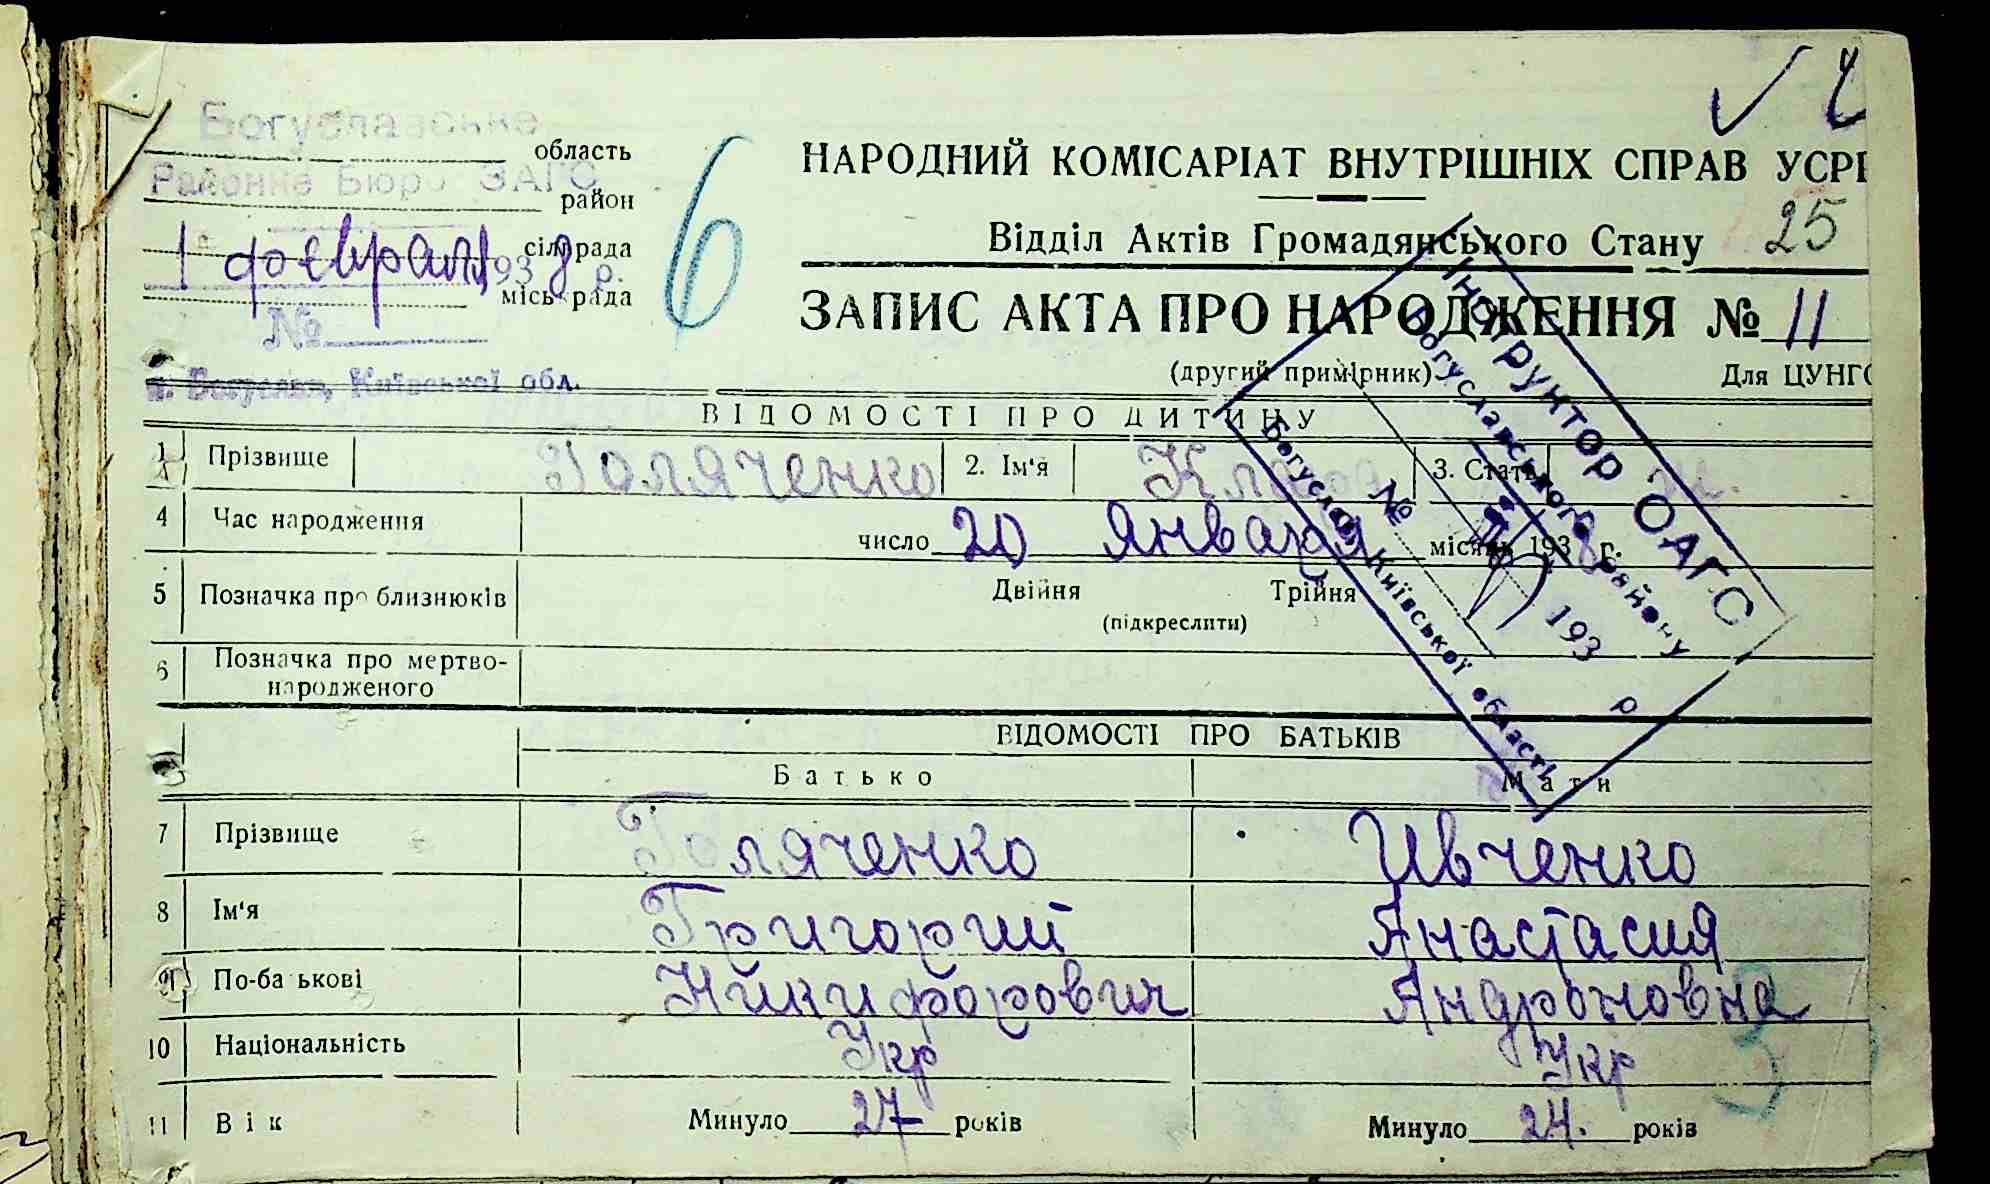 Богуславське
область
Районне Бюро ЗАГС
район
сільрада
1 февраля 1938 р.
міськрада
№
м. Богуслав, Київської обл.
6
НАРОДНИЙ КОМІСАРІАТ ВНУТРІШНІХ СПРАВ УСРР
Відділ Актів Громадянського Стану 25
ЗАПИС АКТА ПРО НАРОДЖЕННЯ № 11
(другий примірник) Для ЦУНГО
Інструктор ОАГС
Богуславського району
№ 193 р
Богуслав Київської області
ВІДОМОСТІ ПРО ДИТИНУ
1 Прізвище Голяченко 2. Ім'я 3. Стать ж.
4 Час народження число 20 января місяць 1938 р.
5 Позначка про близнюків Двійня Трійня
(підкреслити)
6 Позначка про мертво-
народженого
ВІДОМОСТІ ПРО БАТЬКІВ
Батько Мати
7 Прізвище Голяченко Ивченко
8 Ім'я Григорий Анастасия
9 По-батькові Никифорович Андроновна
10 Національність Укр Укр
11 Вік Минуло 27 років Минуло 24. років
3